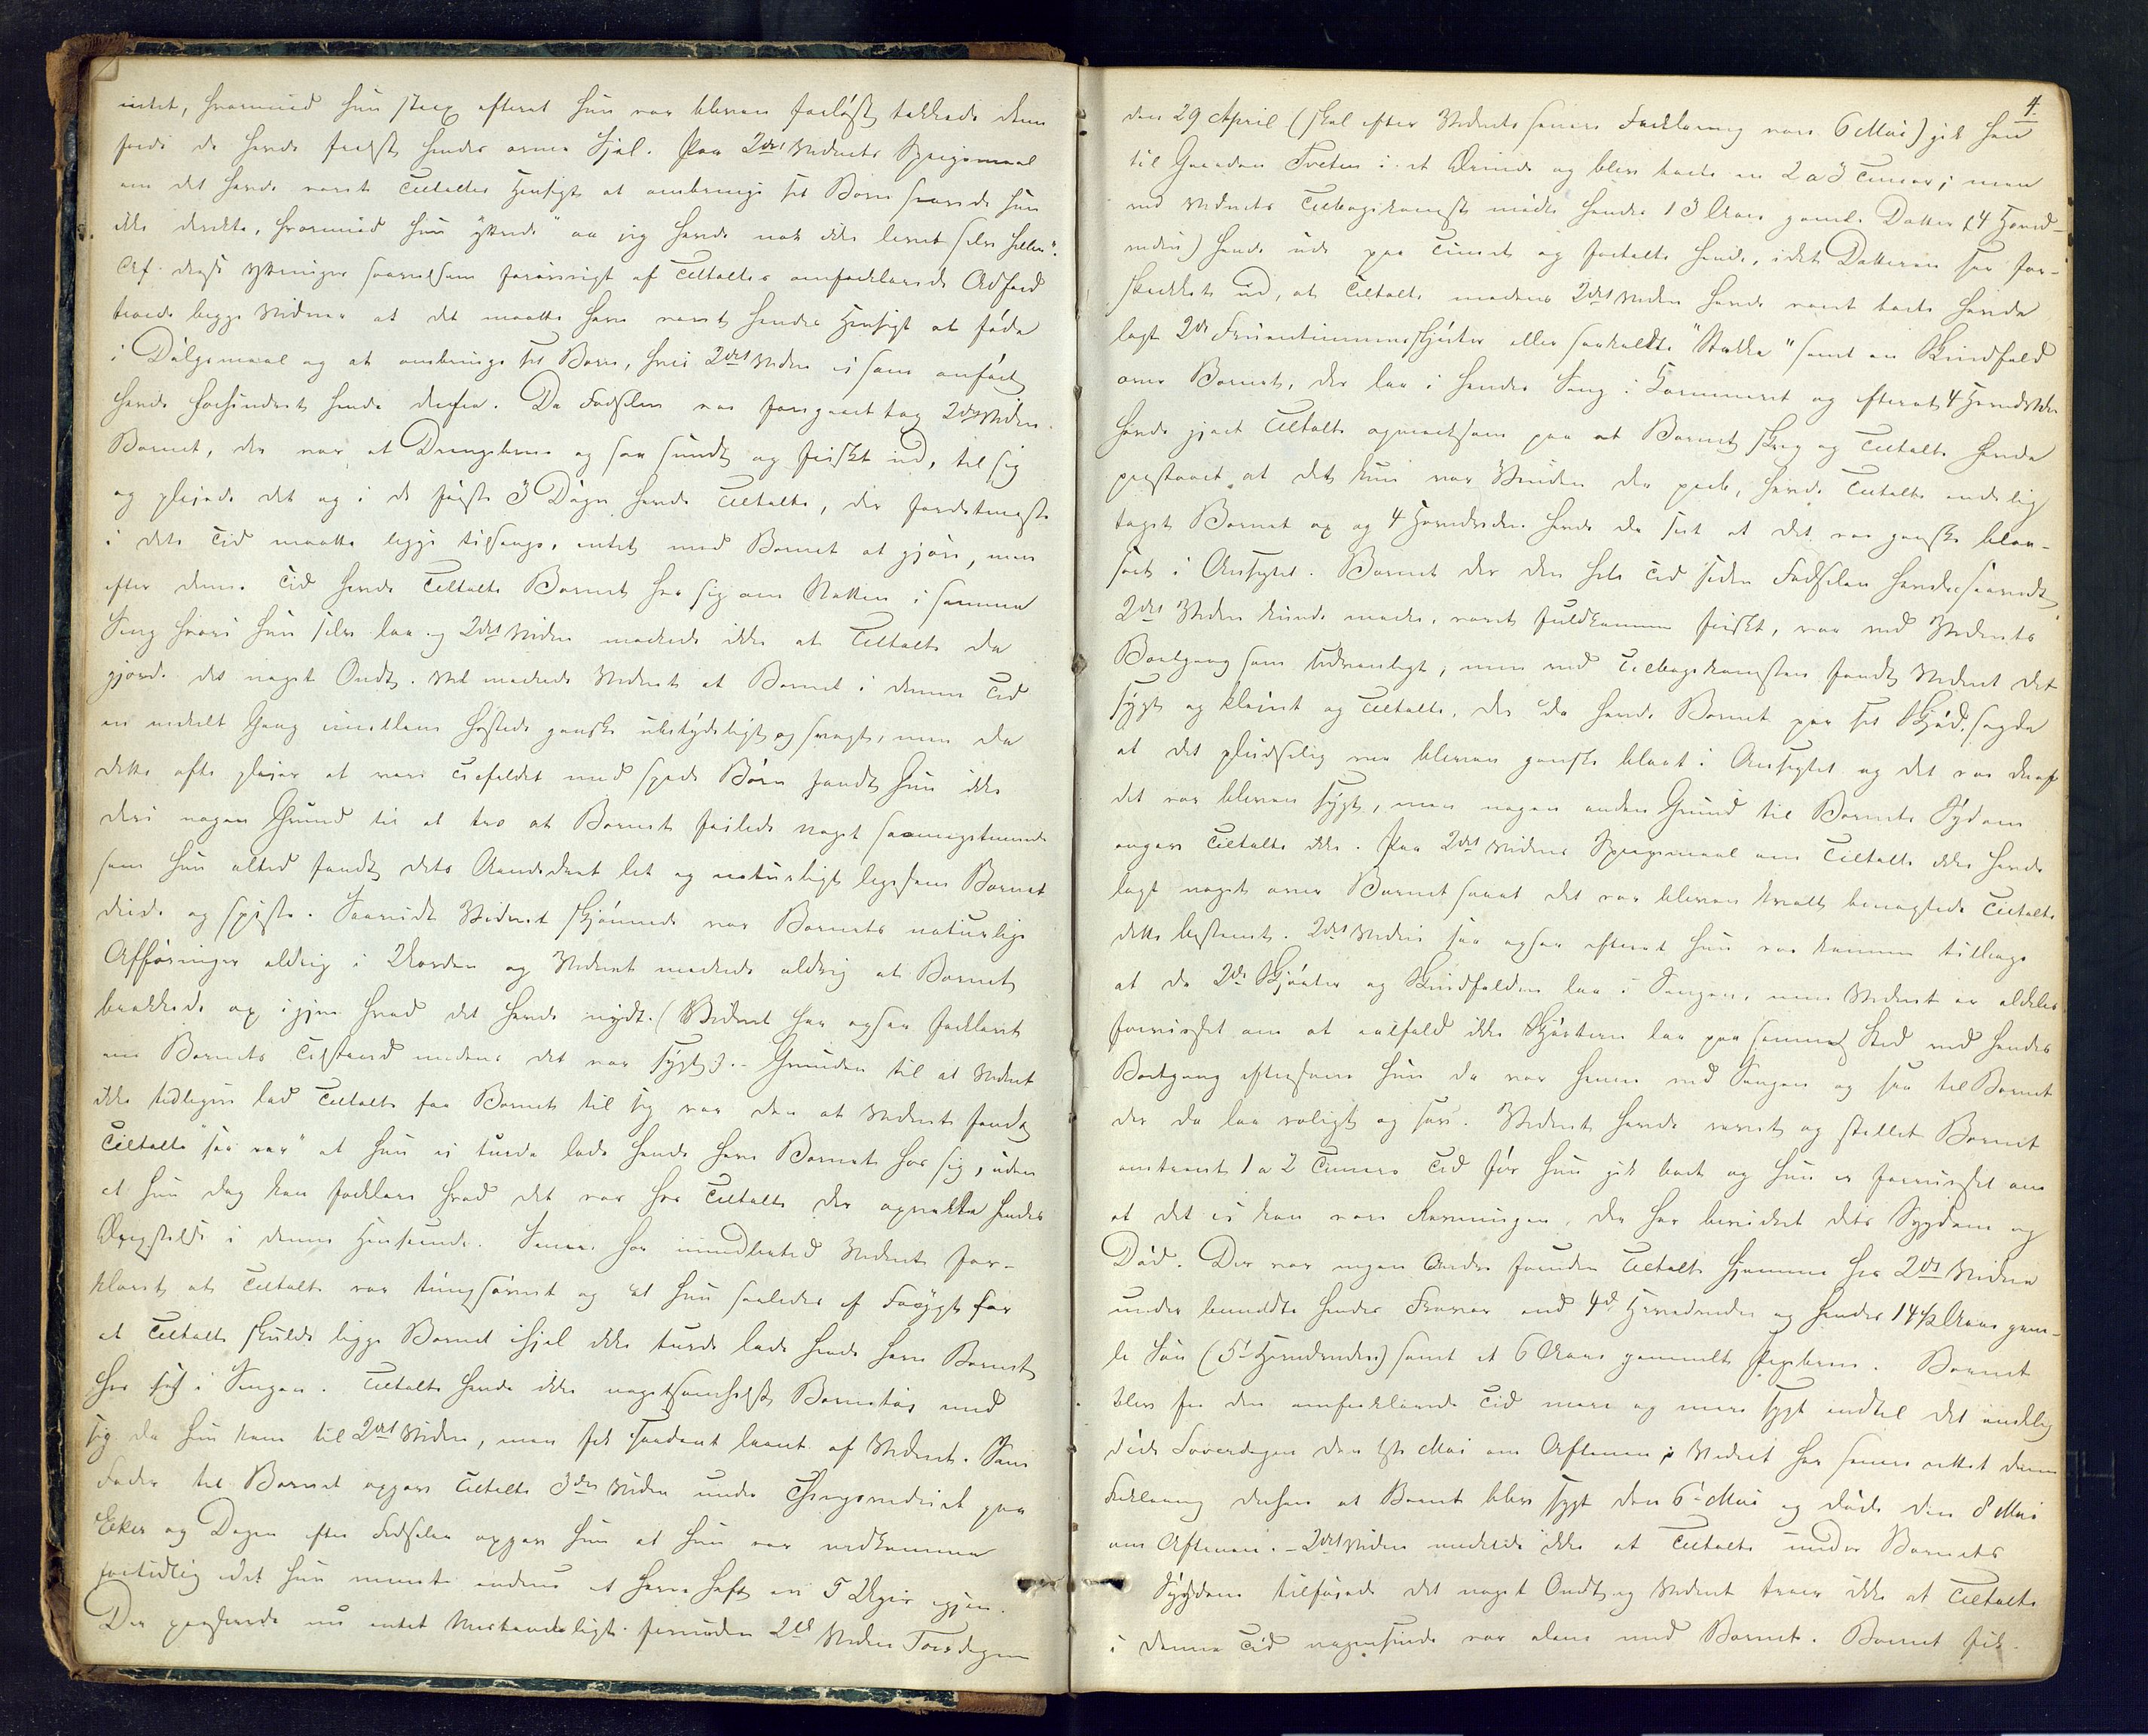 intet, hvormed hun strax efterat hun var bleven forløst takkede dem
fordi de havde frelst hendes arme Sjel. Paa 2det Vidnets Spørgsmaal
om det havde været Tiltaltes Hensigt at ombringe sit Barn svarede hun
ikke direkte, hvormed hun yttrede "aa jeg havde nok ikke levet selv heller".
Af disse Yttringer saavelsom forøvrigt af Tiltaltes omforklarede Adfærd
troede begge Vidner at det maatte have været hendes Hensigt at føde
i Dølgsmaal og at ombringe sit Barn, hvis 2det Vidne ei som anført
havde forhindret hende derfra. Da Fødselen var foregaaet tog 2det Vidne
Barnet, der var et Drengebarn og saa sundt og friskt ud, til sig
og pleiede det og i de første 3 Døgn havde Tiltalte, der fordetmeste
i dette Tid maatte ligge tilsengs, intet med Barnet at gjøre, men
efter denne Tid havde Tiltalte Barnet hos sig om Natten i samme
Seng hvori hun selv laa og 2det Vidne mærkede ikke at Tiltalte da
gjorde det noget Ondt. Vel mærkede Vidnet at Barnet i denne Tid
en enkelt Gang imellem hostede ganske ubetydeligt og svagt, men da
dette ofte pleier at være Tilfældet med spæde Børn fandt hun ikke
deri nogen Grund til at tro at Barnet feilede noget saameget mindre
som hun altid fandt dets Aandedræt let og naturligt ligesom Barnet
diede og spiste. Saavidt Vidnet skjønnede var Barnets naturlige
Afføringer aldrig i Uorden og Vidnet mærkede aldrig at Barnet
brækkede op igjen hvad det havde nydt. (Vidnet har ogsaa forklaret
om Barnets Tilstand medens det var sygt). - Grunden til at Vidnet
ikke tidligere lod Tiltalte faa Barnet til sig var den at Vidnet fandt
Tiltalte "saa rar" at hun ei turde lade hende have Barnet hos sig, uden
at hun dog kan forklare hvad det var hos Tiltalte der opvakte hendes
Ængstelse i denne Henseende. Senere har imidlertid Vidnet for-
klaret at Tiltalte var tungsøvnet og at hun saaledes af Frygt for
at Tiltalte skulde ligge Barnet ihjel ikke turde lade hende have Barnet
hos sig i Sengen. Tiltalte havde ikke nogetsomhelst Barnetøi med
sig da hun kom til 2det Vidne, men fik saadant laant af Vidnet. Som
Fader til Barnet opgav Tiltalte 3die Vidne under
Eker og Dagen efter Fødselen opgav hun at hun var nedkommen
fortidlig idet hun mente endnu at have havt en 5 Uger igjen.
Der passerede nu intet Mistænkeligt førenden 2det Vidne Torsdagen
4.
den 29 April (skal efter Vidnets senere Forklaring være 6 Mai) gik hen
til Gaarden Tveten i et Ærinde og blev borte en 2 a 3 Timer; men
ved Vidnets Tilbagekomst mødte hendes 13 Aar gamle Datter (4 Hoved-
vidne) hende ude paa Tunet og fortalte hende, idet Datteren saa for-
skrækket ud, at Tiltalte medens 2det Vidne havde været borte havde
lagt 2de Fruentimmerskjørter eller saakaldte "Stakke" samt en Skindfeld
over Barnet, der laa i hendes Seng i Kammeret og efterat 4 Hovedvidne
havde gjort Tiltalte opmærksom paa at Barnet skreg og Tiltalte havde
paastaaet at det kun var Vinden der peeb, havde Tiltalte endelig
taget Barnet op og 4 Hovedvidne havde da seet at det var ganske blaa-
sort i Ansigtet. Barnet der den hele Tid siden Fødselen havde, saavidt
2det Vidne kunde mærke, været fuldkommen friskt, var ved Vidnets
Bortgang som sædvanligt, men ved Tilbagekomsten fandt Vidnet det
sygt og kleint og Tiltalte, der da havde Barnet paa sit Skjød, sagde
at det pludselig var bleven ganske blaat i Ansigtet og det var deraf
det var bleven sygt, men nogen anden Grund til Barnets Sygdom
angav Tiltalte ikke. Paa 2det Vidnes Spørgsmaal om Tiltalte ikke havde
lagt noget over Barnet saaat det var bleven kvalt benægtede Tiltalte
dette bestemt. 2det Vidne saa ogsaa efterat hun var kommen tilbage
at de 2de Skjørter og Skindfelden laa i Sengen, men Vidnet er aldeles
forvisset om at ialfald ikke Skjørterne laa paa samme Sted ved hendes
Bortgang eftersom hun da var henne ved Sengen og saa til Barnet
der da laa roligt og sov. Vidnet havde vasket og stellet Barnet
omtrent 1 a 2 Timers Tid før hun gik bort og hun er forvisset om
at det ei kan være, der har bevirket dets Sygdom og
Død. Der var ingen Andre foruden Tiltalte hjemme hos 2det Vidne
under bemeldte hendes Fravær end 4de Hovedvidne og hendes 14½ Aar gam-
le Søn (5te Hovedvidne) samt et 6 Aars gammelt Pigebarn. Barnet
blev fra den omforklarede Tid mere og mere sygt indtil det endelig
døde Løverdagen den 1ste Mai om Aftenen; Vidnet har senere rettet denne
Forklaring derhen at Barnet blev sygt den 6te Mai og døde den 8 Mai
om Aftenen. - 2det Vidne mærkede ikke at Tiltalte under Barnets
Sygdom tilføiede det noget Ondt og Vidnet troer ikke at Tiltalte
i denne Tid nogensinde var alene med Barnet. Barnet fik